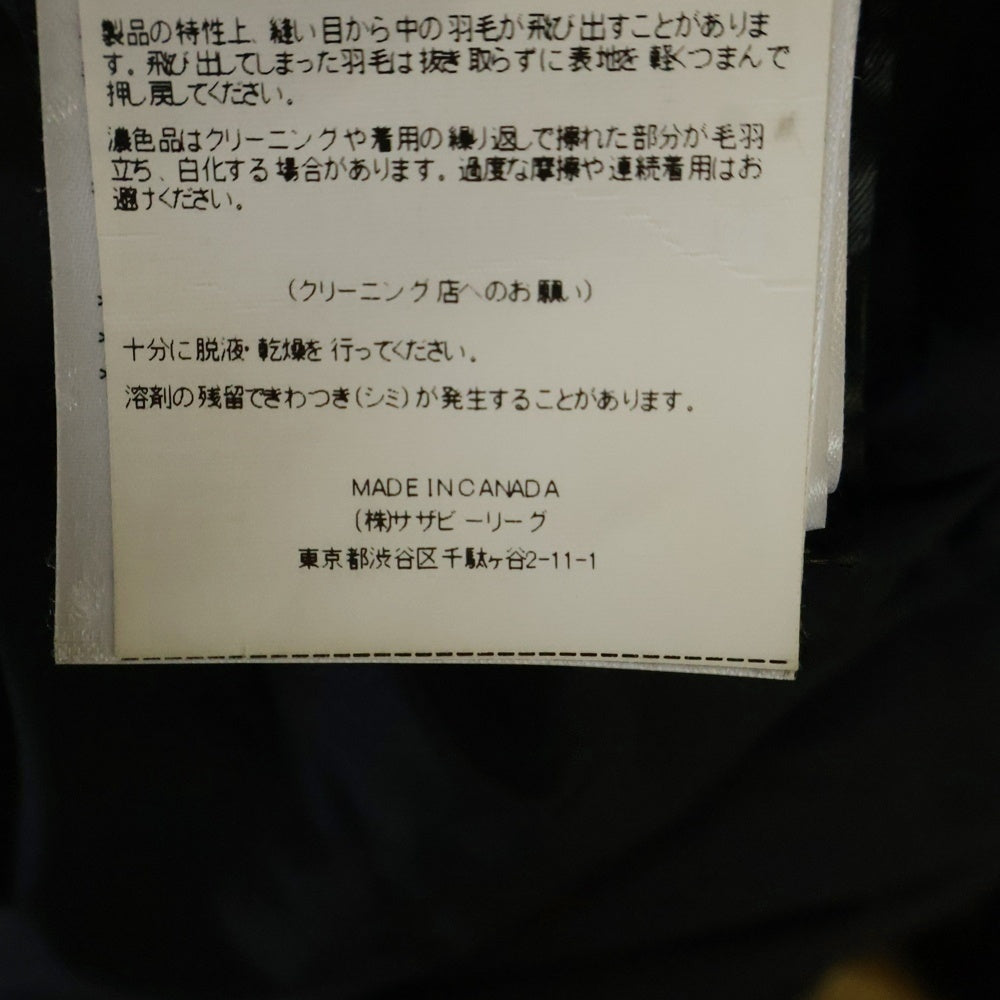 製品の特性上、縫い目から中の羽毛が飛び出すことがありま
す。飛び出してしまった羽毛は抜き取らずに表地を軽くつまんで
押し戻してください。
濃色品はクリーニングや着用の繰り返しで擦れた部分が毛羽
立ち、白化する場合があります。過度な摩擦や連続着用はお
避けください。
(クリーニング店へのお願い)
十分に脱液・乾燥を行ってください。
溶剤の残留できわつき(シミ)が発生することがあります。
MADE IN CANADA
(株)サザビーリーグ
東京都渋谷区千駄ヶ谷2-11-1